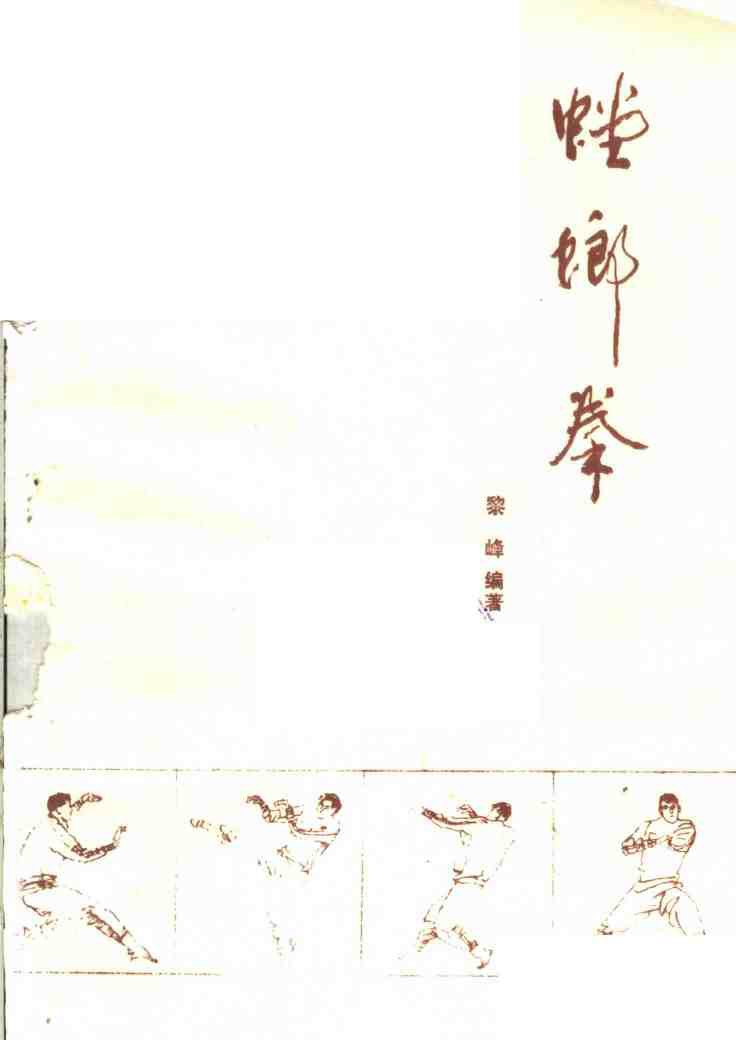 螳螂拳
黎峰编著